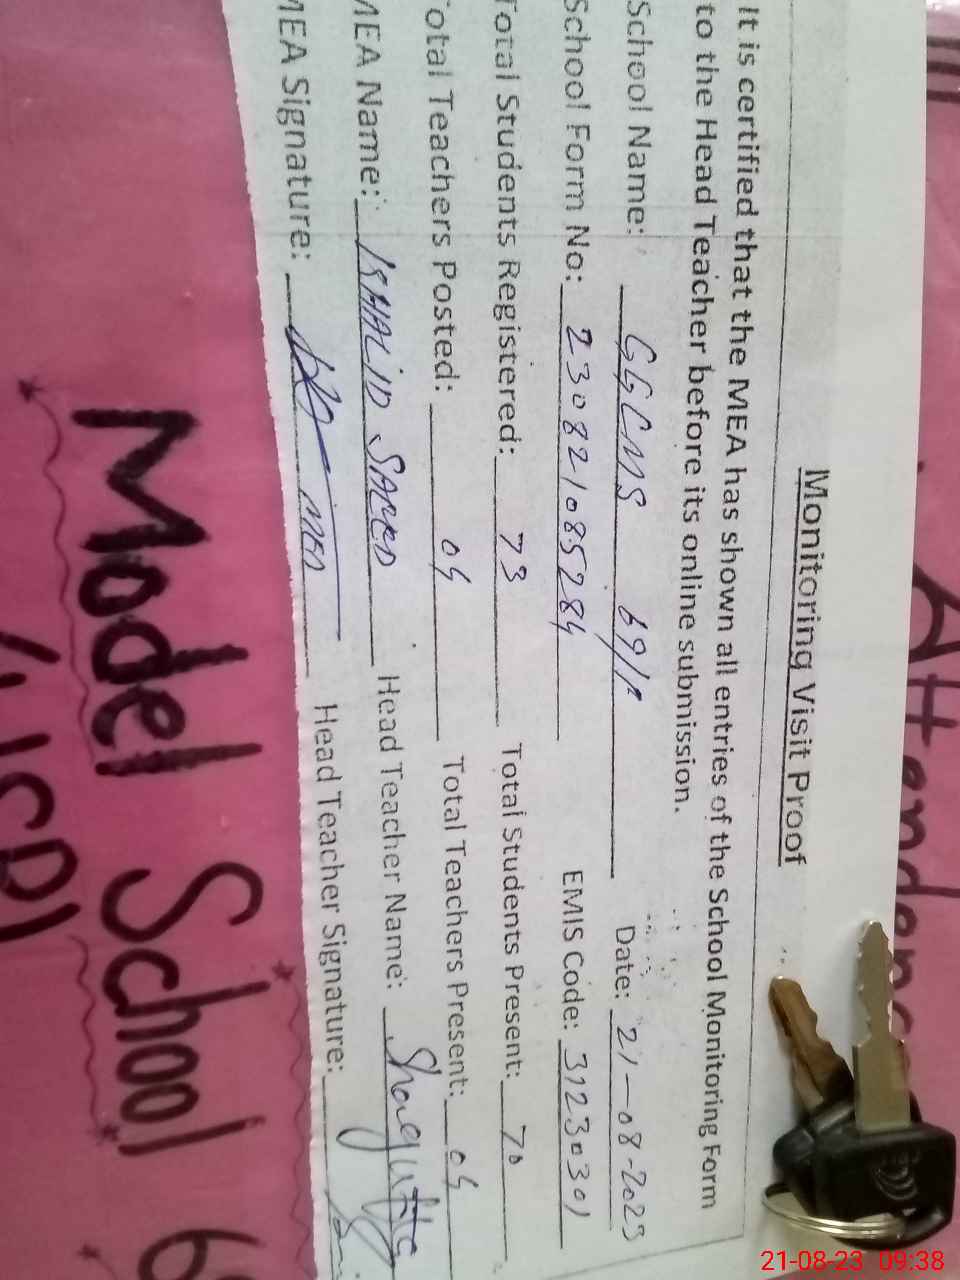 Attendance
Monitoring Visit Proof
It is certified that the MEA has shown all entries of the School Monitoring Form
to the Head Teacher before its online submission.
School Name: GGCMS 69/P Date: 21-08-2023
School Form No: 230821085284 EMIS Code: 31230301
Total Students Registered: 73 Total Students Present: 70
Total Teachers Posted: 04 Total Teachers Present: 04
MEA Name: KHALID SAEED Head Teacher Name: Shagufta
MEA Signature: MEA Head Teacher Signature:
Model School 6
21-08-23 09:38